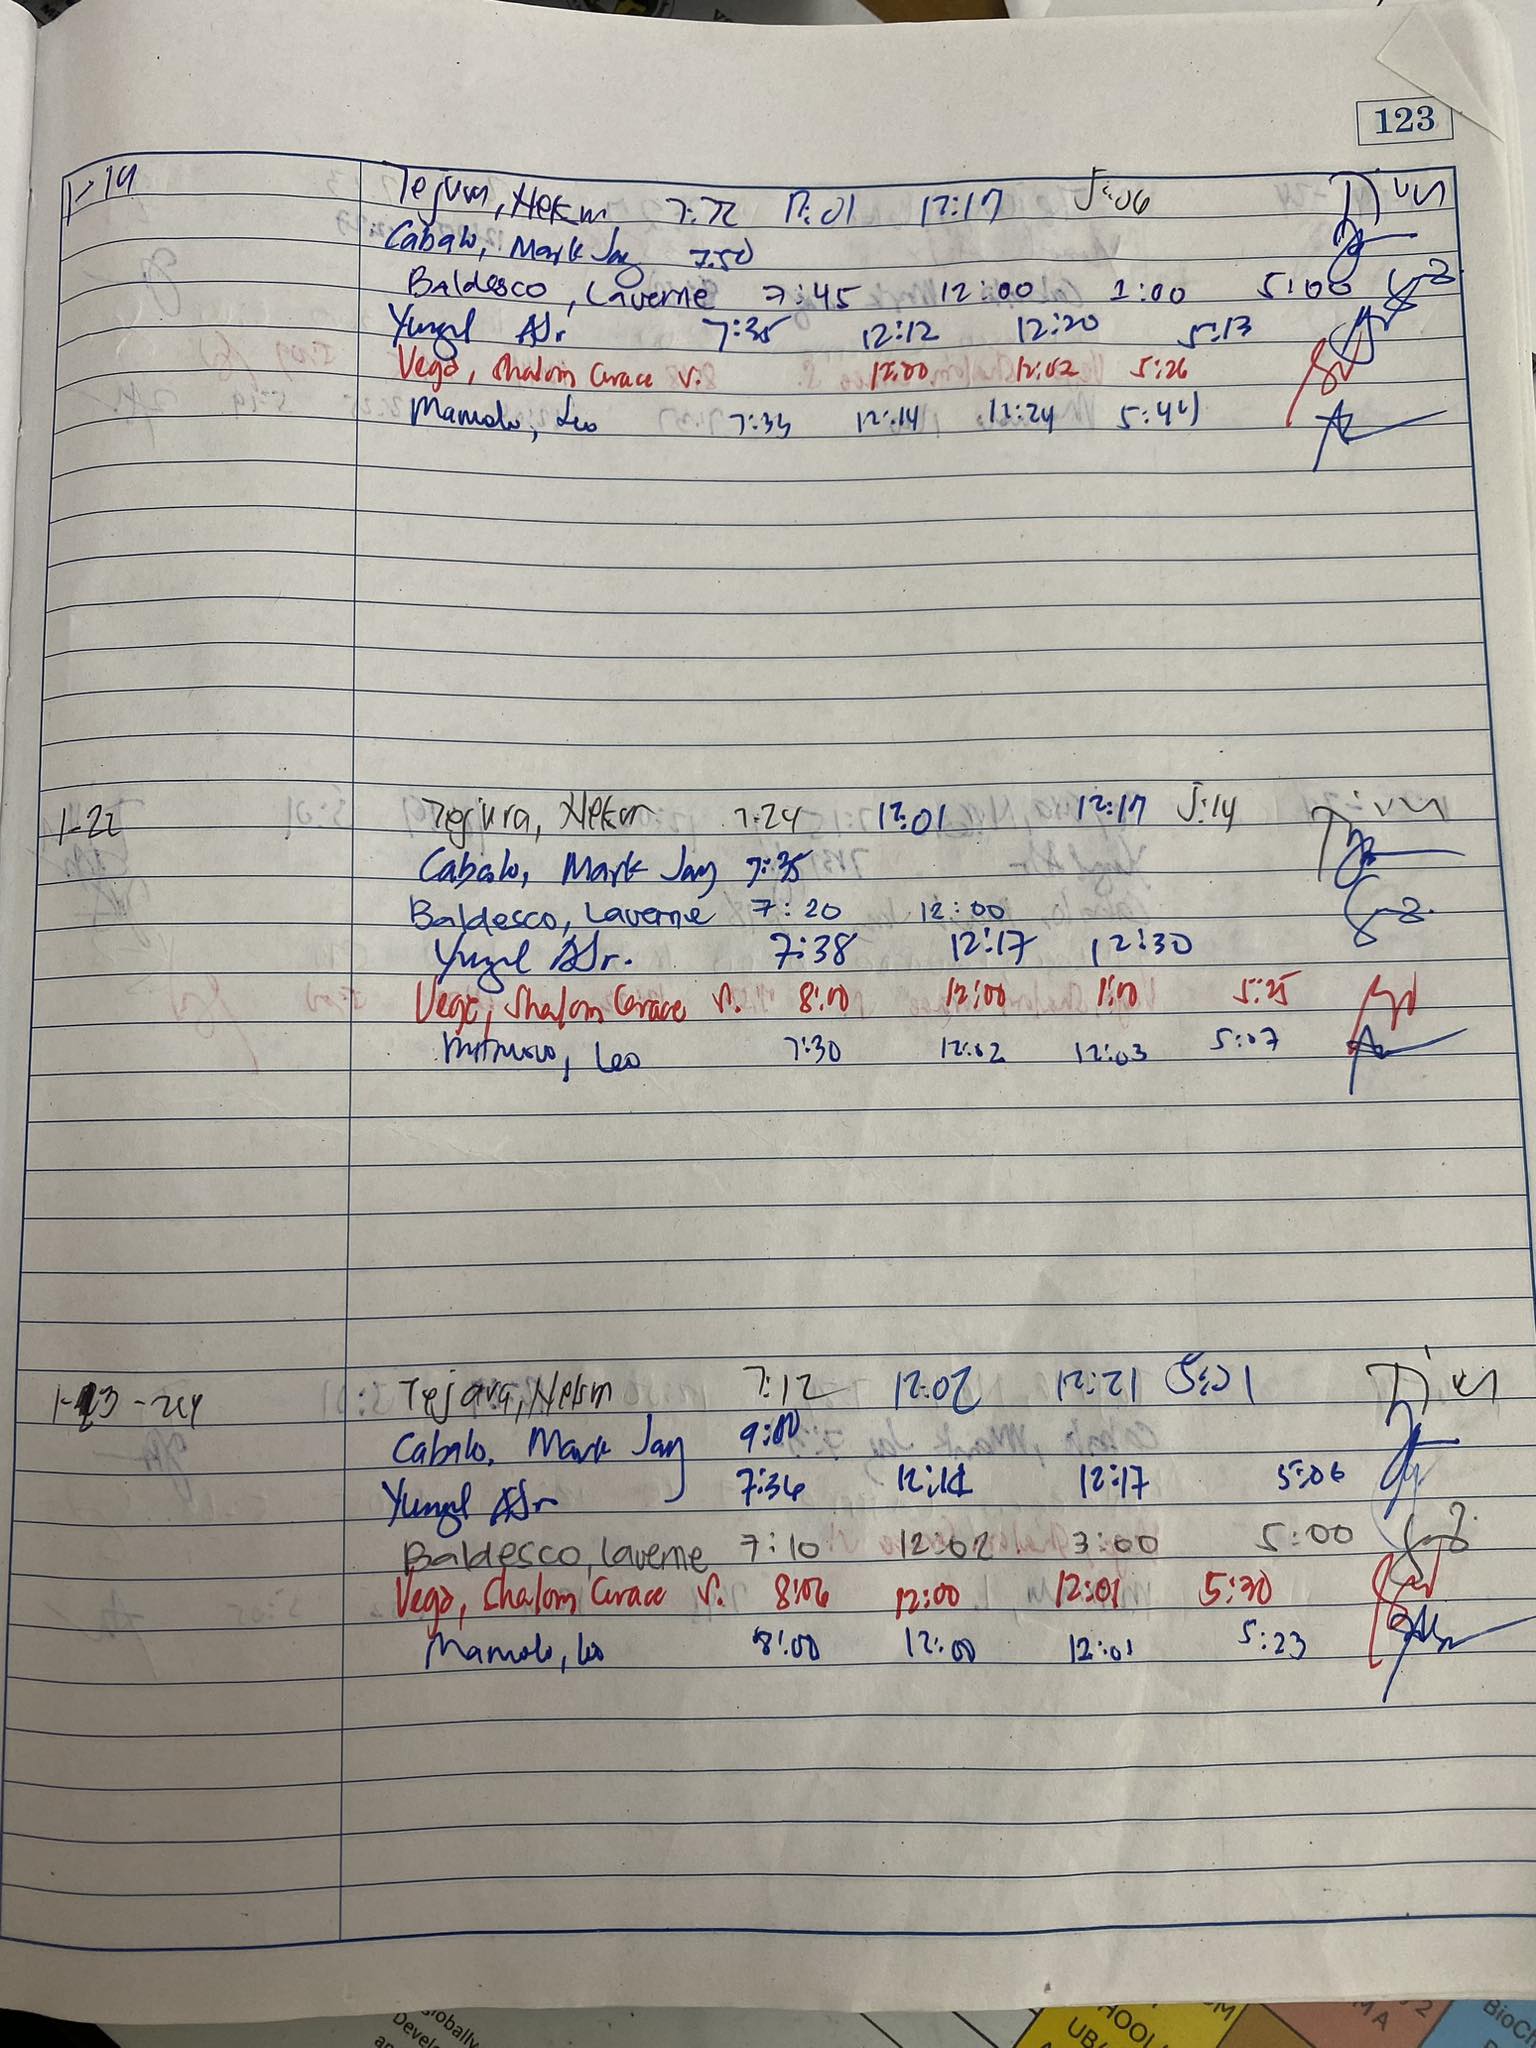 123
1-19 Tejura, Hekm 7:22 12:01 12:17 5:06
Cabalo, Mark Jay 7:50
Baldesco, Laverne 7:45 12:00 1:00 5:00
Yungl AJr. 7:35 12:12 12:20 5:13
Vega, Shalom Grace V. 12:00 12:02 5:26
Mamolo, Leo 7:33 12:14 12:24 5:44
1-22 Tejura, Hekm 7:24 12:01 12:17 5:14
Cabalo, Mark Jay 7:35
Baldesco, Laverne 7:20 12:00
Yungl AJr. 7:38 12:17 12:30
Vega, Shalom Grace V. 8:00 12:00 1:00 5:25
Leo 7:30 12:02 12:03 5:07
1-23-24 Tejara, Hekm 7:12 12:02 12:21 5:01
Cabalo, Mark Jay 9:00
Yungl AJr 7:36 12:12 12:17 5:06
Baldesco, Laverne 7:10 12:02 3:00 5:00
Vega, Shalom Grace V. 8:06 12:00 12:01 5:30
Mamolo, Leo 8:00 12:00 12:01 5:23
lobally
Develo
an
HOOL
UBA
OM
M A
2
BioCh